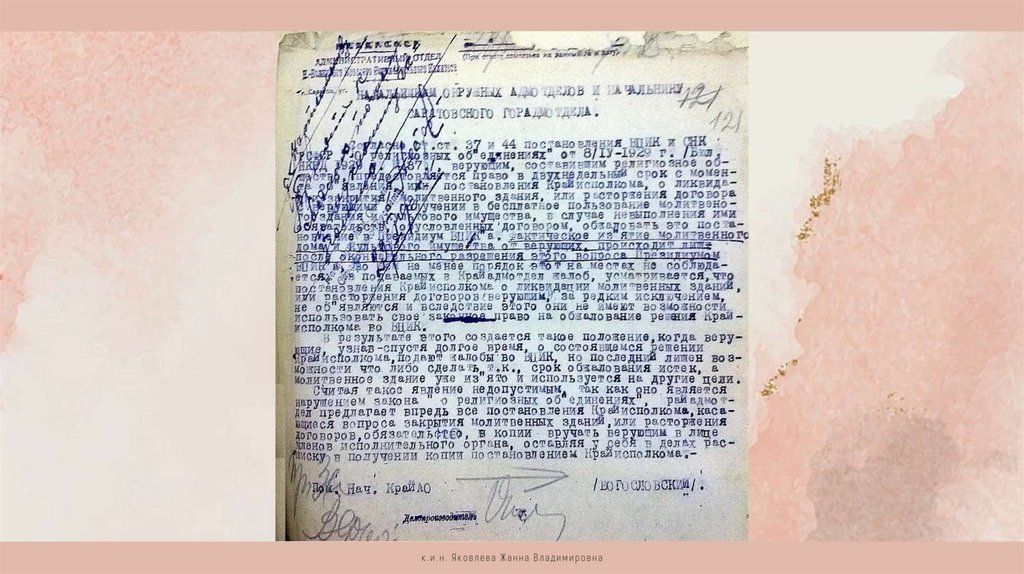 АДМИНИСТРАТИВНЫЙ ОТДЕЛ
г. Саратов,
НАЧАЛЬНИКАМ ОКРУЖНЫХ АДМОТДЕЛОВ И НАЧАЛЬНИКУ
121
САРАТОВСКОГО ГОРАДМОТДЕЛА.
121
Согласно ст. 37 и 44 постановления ВЦИК и СНК
РСФСР "О религиозных об"единениях" от 8/IУ-1929 г. /Бюл.
НКВД 1929 верующим, составившим религиозное об-
предоставляется право в двухнедельный срок с момен-
та постановления Крайисполкома, о ликвида-
молитвенного здания, или расторжения договора
получении в бесплатное пользование молитвено-
имущества, в случае невыполнения ими
договором, обжаловать это поста-
в Президиум ВЦИК"а. Фактическое из"ятие молитвенного
дома и культового имущества от верующих, происходит лишь
после окончательного разрешения этого вопроса Президиумом
ВЦИК"а, не менее порядок этот на местах не соблюда-
ется, из подаваемых в Крайадмотдел жалоб, усматривается, что
постановления Крайисполкома о ликвидации молитвенных зданий,
или расторжения договоров верующим, за редким исключением,
не об"являются и вследствие этого они не имеют возможности
использовать свое законное право на обжалование решения Край-
исполкома во ВЦИК.
В результате этого создается такое положение, когда веру-
ющие, узнав-спустя долгое время, о состоявшемся решении
Крайисполкома, подают жалобы во ВЦИК, но последний лишен воз-
можности что либо сделать, т.к., срок обжалования истек, а
молитвенное здание уже из"ято и используется на другие цели.
Считая такое явление недопустимым, так как оно является
нарушением закона " о религиозных об"единениях", райадмот-
дел предлагает впредь все постановления Крайисполкома, каса-
ющиеся вопроса закрытия молитвенных зданий, или расторжения
договоров, обязательство, в копии вручать верующим в лице
членов исполнительного органа, оставляя у себя в делах рас-
писку в получении копии постановлением Крайисполкома.-
Пом. Нач. КрайАО /БОГОСЛОВСКИЙ/.
Делопроизводитель
к.и.н. Яковлева Жанна Владимировна